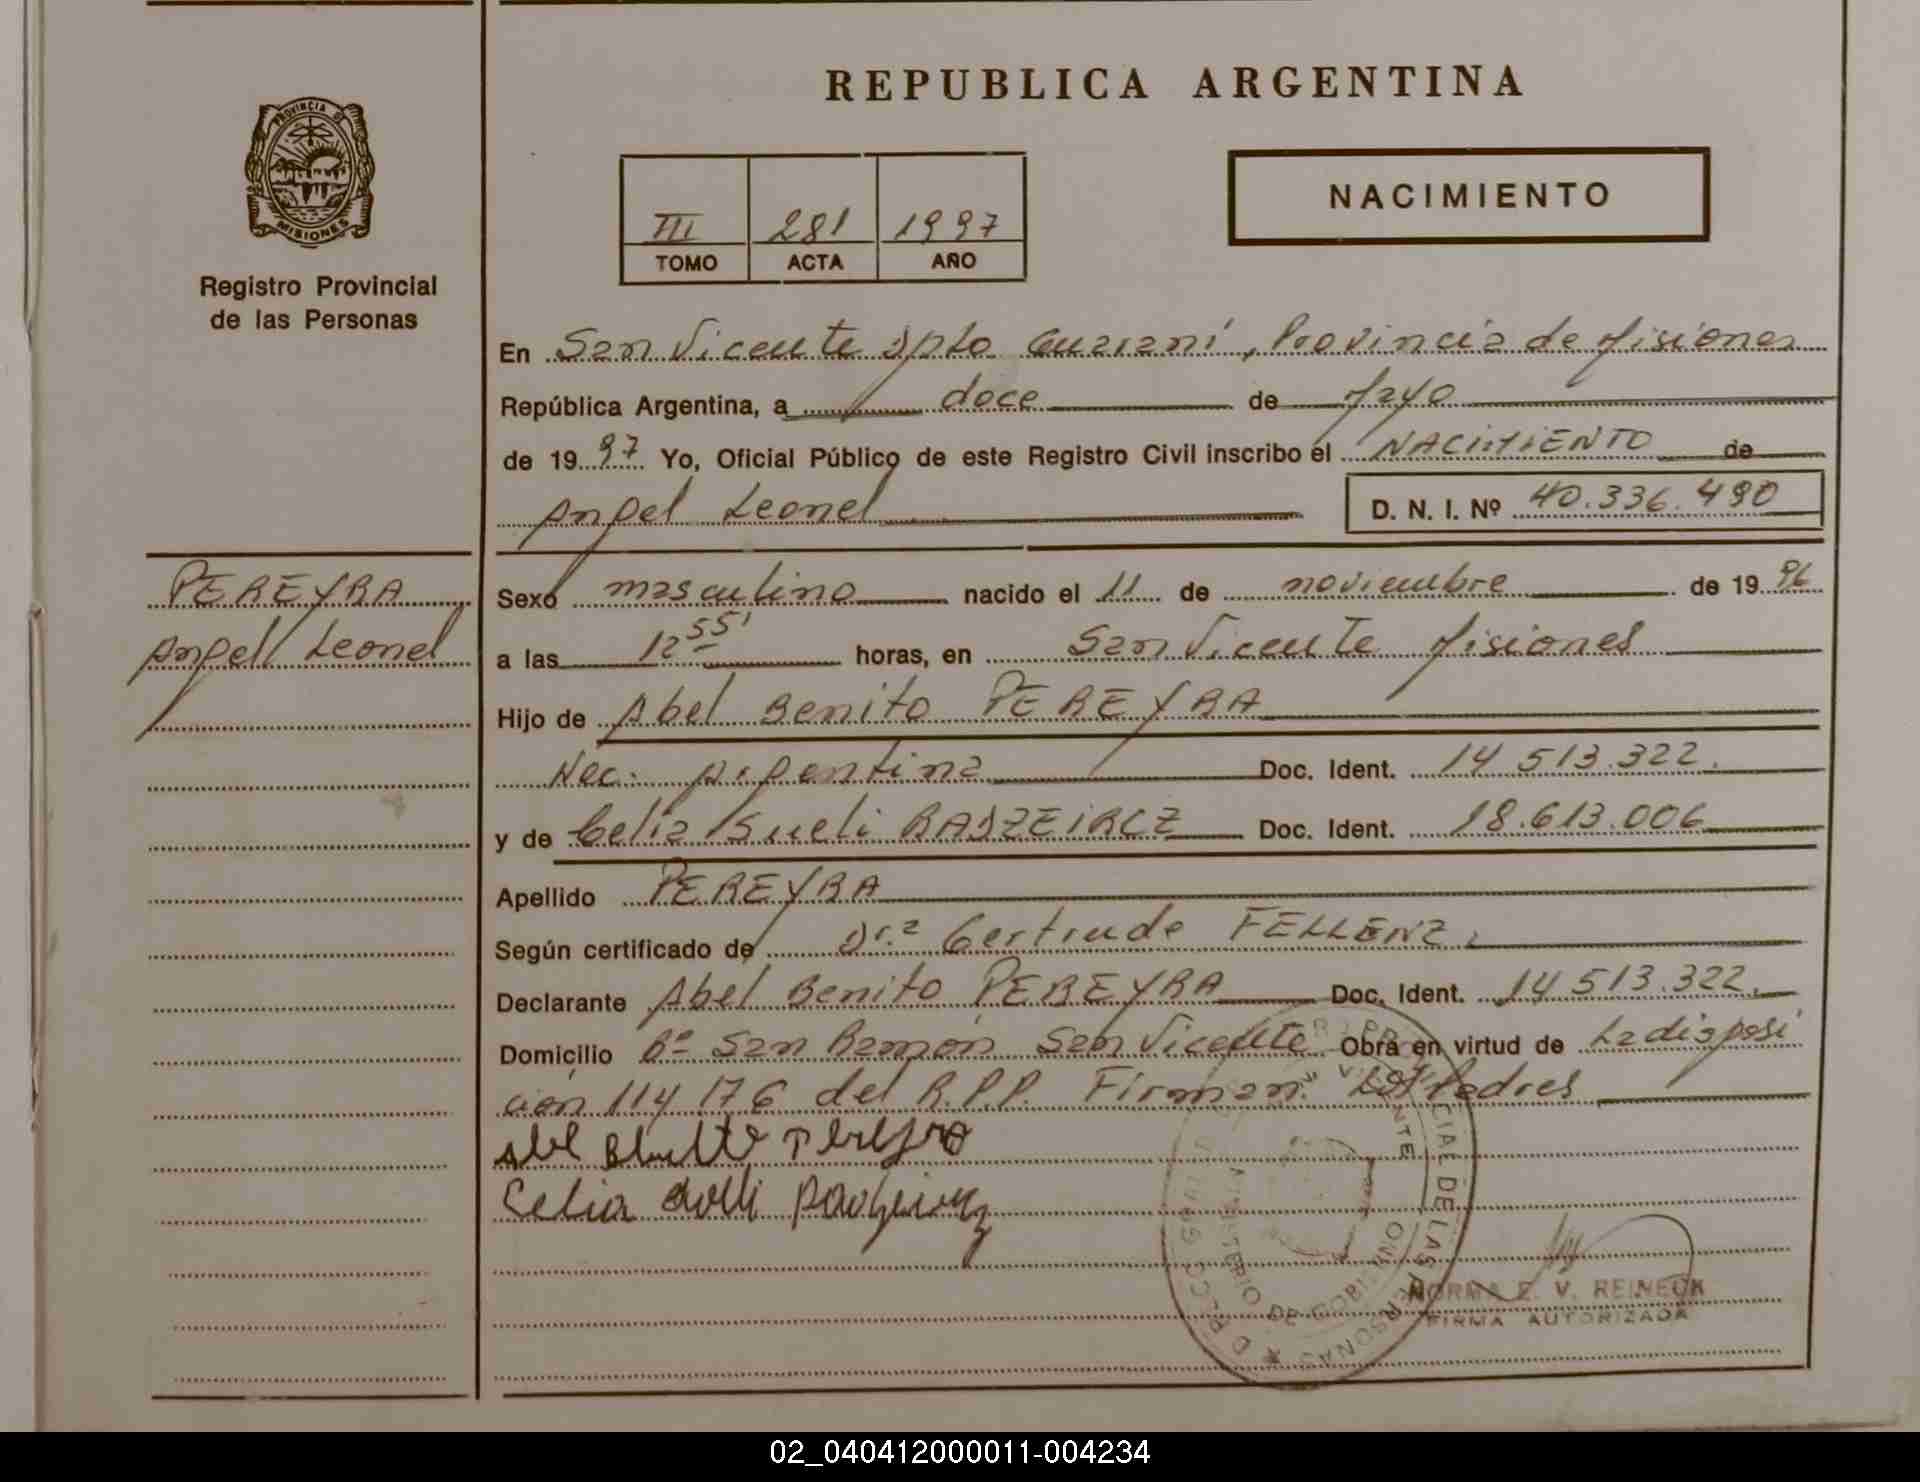 PROVINCIA DE
MISIONES
Registro Provincial
de las Personas
REPUBLICA ARGENTINA
III 281 1997
TOMO ACTA AÑO
NACIMIENTO
En San Vicente Dpto Guaraní, Provincia de Misiones
República Argentina, a doce de Mayo
de 1997 Yo, Oficial Público de este Registro Civil inscribo el NACIMIENTO de
Angel Leonel D. N. I. Nº 40.336.490
PEREYRA
Angel Leonel
Sexo masculino nacido el 11 de noviembre de 1996
a las 12 55' horas, en San Vicente Misiones
Hijo de Abel Benito PEREYRA
Nac. Argentina Doc. Ident. 14 513.322.
y de Celia Sueli RADZEIRCZ Doc. Ident. 18.613.006
Apellido PEREYRA
Según certificado de Dra Gertrude FELLENZ.
Declarante Abel Benito PEREYRA Doc. Ident. 14 513.322.
Domicilio Bº San Ramón San Vicente Obra en virtud de La disposi
ción 114 176 del R.P.P. Firman: Los Padres
Celia
NORMA E. V. REINECK
FIRMA AUTORIZADA
MINISTERIO DE GOBIERNO
02_040412000011-004234